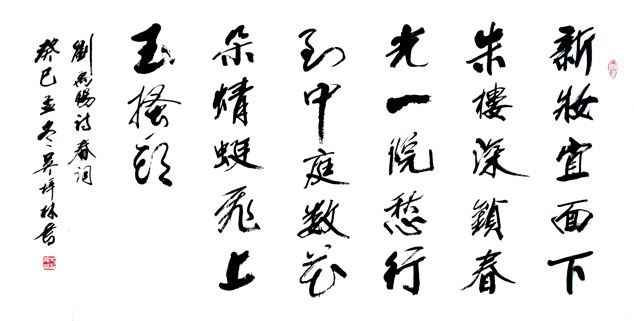 新妝宜面下
朱樓深鎖春
光一院愁行
到中庭数花
朵蜻蜓飛上
玉搔頭
劉禹錫詩春詞
癸巳孟冬吴坪林書